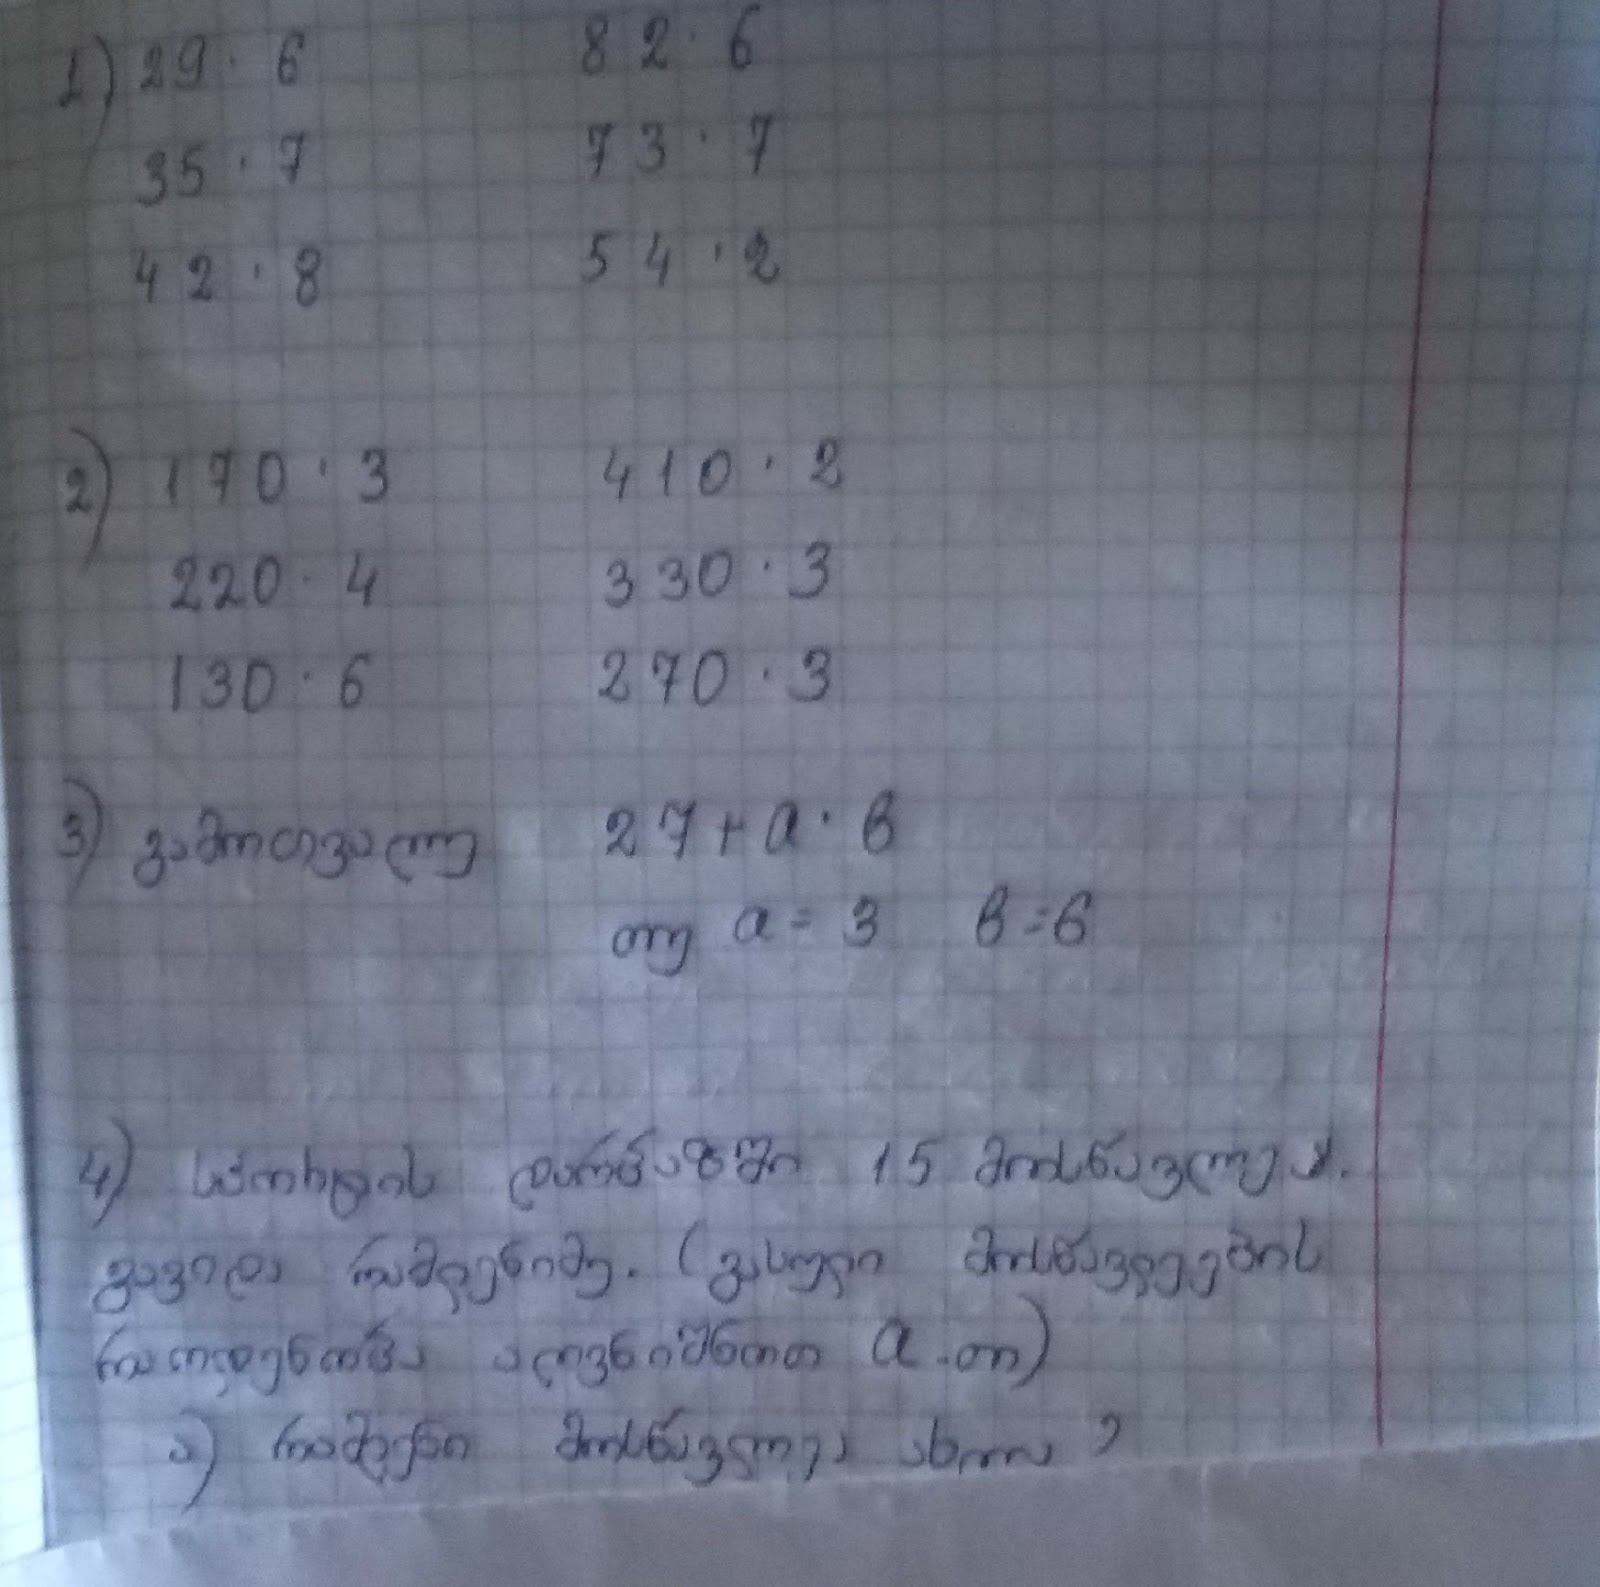 1) 29 · 6 82 · 6
35 · 7 73 · 7
42 · 8 54 · 2
2) 170 · 3 410 · 2
220 · 4 330 · 3
130 · 6 270 · 3
3) გამოთვალე 27 + a · b
თუ a = 3 b = 6
4) სპორტის დარბაზში 15 მოსწავლეა.
გავიდა რამდენიმე. (გასული მოსწავლეების
რაოდენობა აღვნიშნოთ a-თი)
ა) რამდენი მოსწავლეა ახლა ?